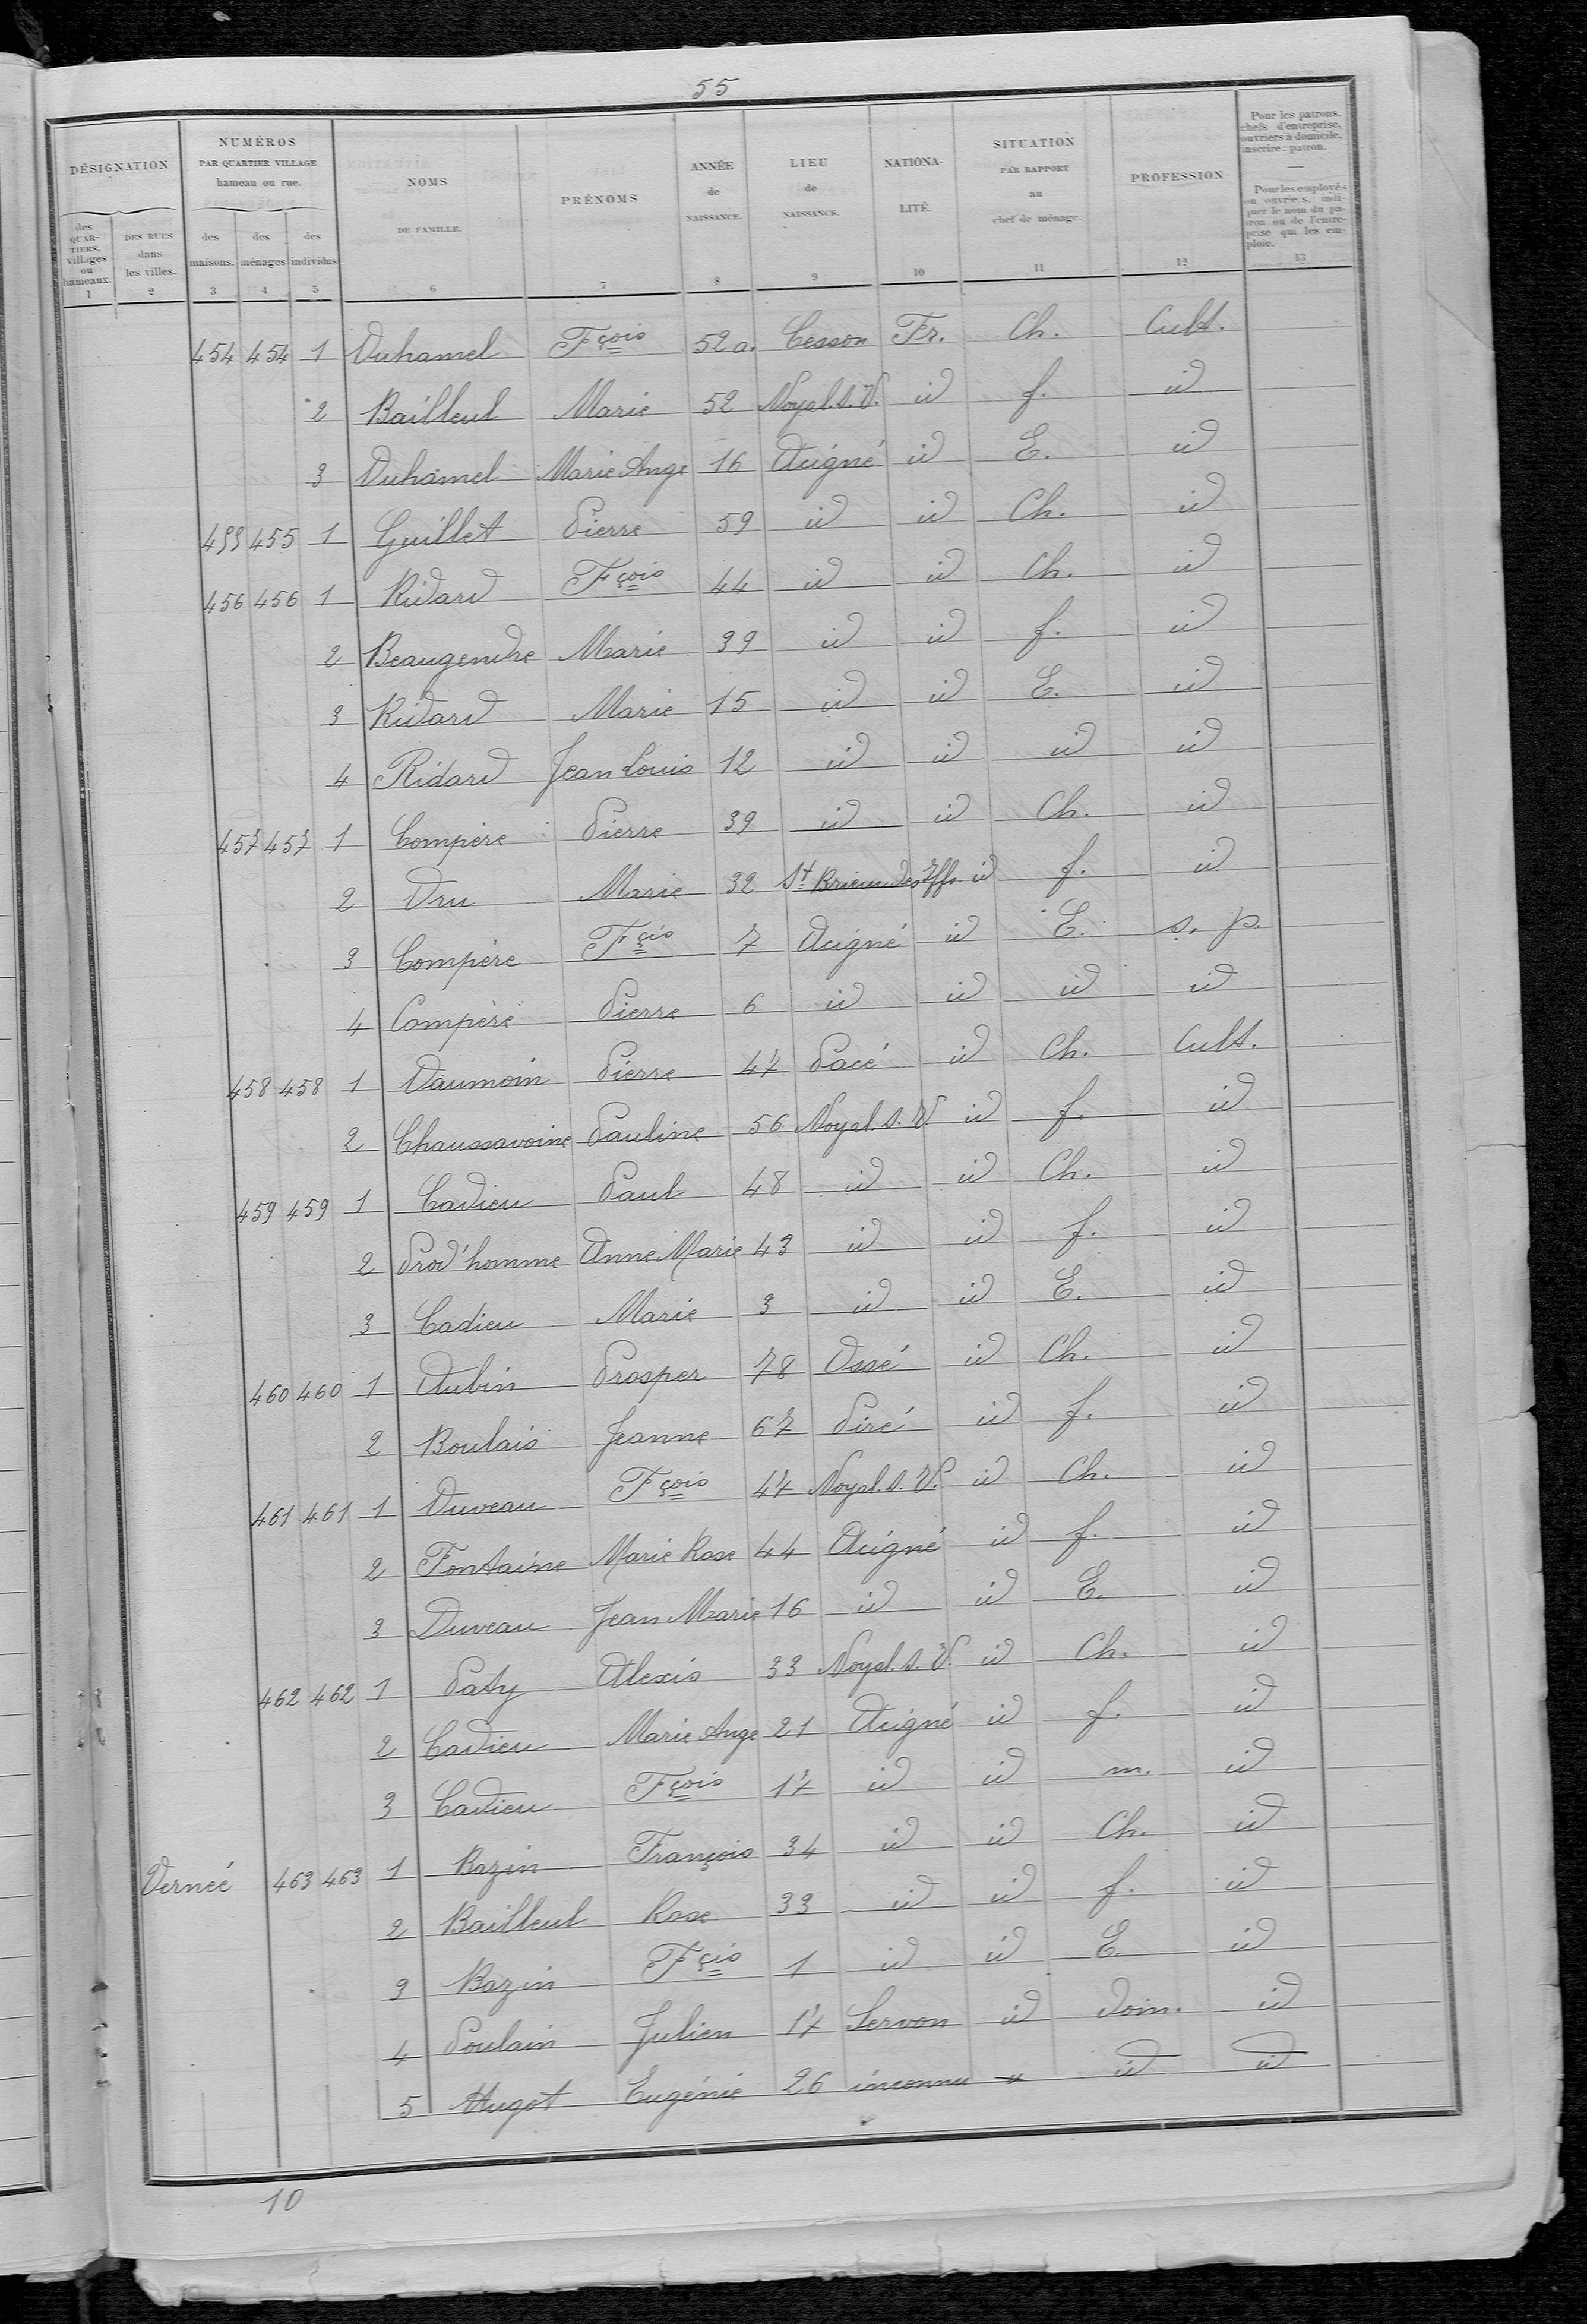 55
DÉSIGNATION | NUMÉROS PAR QUARTIER VILLAGE hameau ou rue. | NOMS DE FAMILLE. | PRÉNOMS | ANNÉE de NAISSANCE. | LIEU de NAISSANCE. | NATIONA-LITÉ. | SITUATION PAR RAPPORT au chef de ménage. | PROFESSION | Pour les patrons, chefs d'entreprise, ouvriers à domicile, inscrire : patron. — Pour les employés ou ouvriers, indiquer le nom du patron ou de l'entreprise qui les emploie.
des QUARTIERS, villages ou hameaux. | DES RUES dans les villes. | des maisons. | des ménages | des individus
1 2 3 4 5 6 7 8 9 10 11 12 13
454 454 1 Duhamel Fçois 52 a. Cesson Fr. Ch. Cult.
2 Bailleul Marie 52 Noyal. s. V. id f. id
3 Duhamel Marie Ange 16 Acigné id E. id
455 455 1 Guillet Pierre 59 id id Ch. id
456 456 1 Ridard Fçois 44 id id Ch. id
2 Beaugendre Marie 39 id id f. id
3 Ridard Marie 15 id id E. id
4 Ridard Jean Louis 12 id id id id
457 457 1 Compère Pierre 39 id id Ch. id
2 Dru Marie 32 St Brieuc des Iffs id f. id
3 Compère Fçis 7 Acigné id E. s. p.
4 Compère Pierre 6 id id id id
458 458 1 Daumoin Pierre 47 Pacé id Ch. Cult.
2 Chaussavoine Pauline 56 Noyal. s. V. id f. id
459 459 1 Cadieu Paul 48 id id Ch. id
2 Prod'homme Anne Marie 43 id id f. id
3 Cadieu Marie 3 id id E. id
460 460 1 Aubin Prosper 78 Ossé id Ch. id
2 Boulais Jeanne 67 Piré id f. id
461 461 1 Duveau Fçois 47 Noyal. s. V. id Ch. id
2 Fontaine Marie Rose 44 Acigné id f. id
3 Duveau Jean Marie 16 id id E. id
462 462 1 Paty Alexis 33 Noyal. s. V. id Ch. id
2 Cadieu Marie Ange 21 Acigné id f. id
3 Cadieu Fçois 17 id id m. id
Vernée 463 463 1 Bazin François 34 id id Ch. id
2 Bailleul Rose 33 id id f. id
3 Bazin Fçis 1 id id E. id
4 Poulain Julien 17 Servon id dom. id
5 Hugot Eugénie 26 inconnu " id id
10